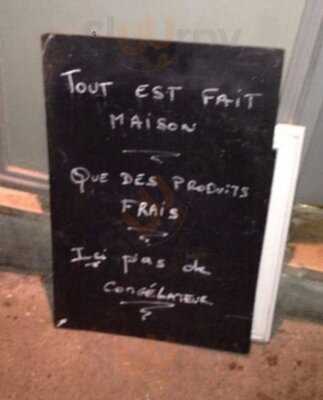 TOUT EST FAIT
MAISON
QUE DES PRODUITS
FRAIS
Ici pas de
CONGÉLATEUR